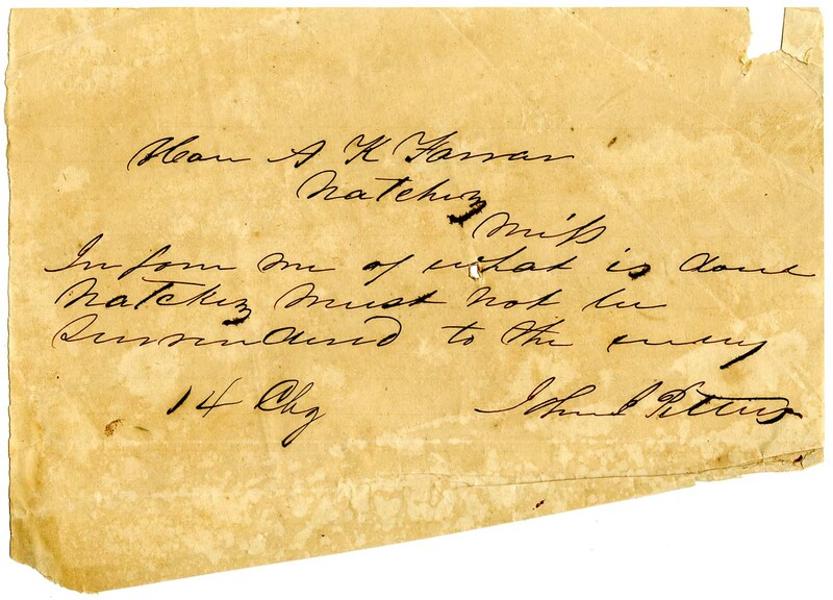 Hon A K Farrar
Natchez
Miss
Inform me of what is done
Natchez must not be
surrendered to the enemy
14 Chg John J Pettus